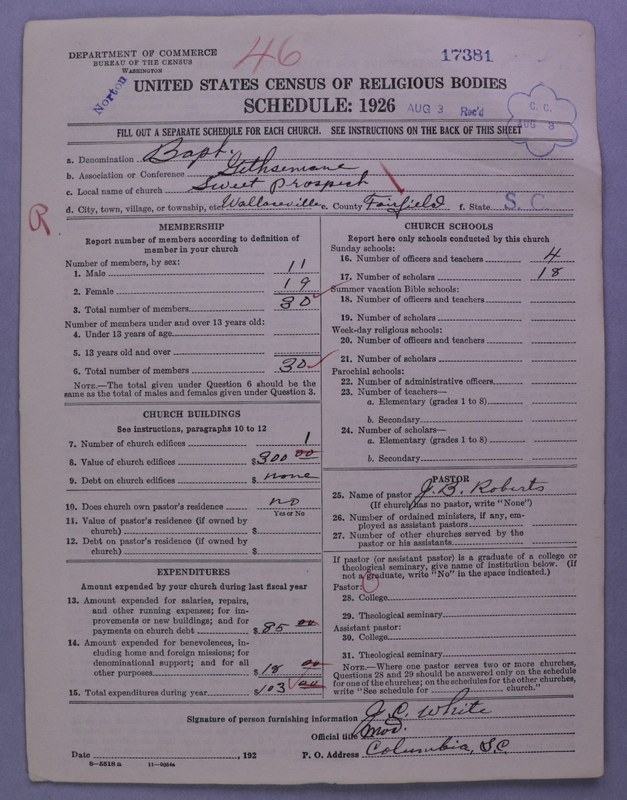 DEPARTMENT OF COMMERCE
BUREAU OF THE CENSUS
WASHINGTON
46
17381
Norton
UNITED STATES CENSUS OF RELIGIOUS BODIES
SCHEDULE: 1926
AUG 3 Rec'd
C. C.
AUG 3
FILL OUT A SEPARATE SCHEDULE FOR EACH CHURCH. SEE INSTRUCTIONS ON THE BACK OF THIS SHEET
a. Denomination Bapt.
b. Association or Conference Gethsemane
c. Local name of church Sweet Prospect
d. City, town, village, or township, etc. Wallaceville e. County Fairfield f. State S. C.
R
MEMBERSHIP
Report number of members according to definition of
member in your church
Number of members, by sex:
1. Male 11
2. Female 19
3. Total number of members 30
Number of members under and over 13 years old:
4. Under 13 years of age
5. 13 years old and over
6. Total number of members 30
NOTE.—The total given under Question 6 should be the
same as the total of males and females given under Question 3.
CHURCH BUILDINGS
See instructions, paragraphs 10 to 12
7. Number of church edifices 1
8. Value of church edifices $300 00
9. Debt on church edifices $ none
10. Does church own pastor's residence no
Yes or No
11. Value of pastor's residence (if owned by
church) $
12. Debt on pastor's residence (if owned by
church) $
EXPENDITURES
Amount expended by your church during last fiscal year
13. Amount expended for salaries, repairs,
and other running expenses; for im-
provements or new buildings; and for
payments on church debt $85 00
14. Amount expended for benevolences, in-
cluding home and foreign missions; for
denominational support; and for all
other purposes $18 00
15. Total expenditures during year $103 00
CHURCH SCHOOLS
Report here only schools conducted by this church
Sunday schools:
16. Number of officers and teachers 4
17. Number of scholars 18
Summer vacation Bible schools:
18. Number of officers and teachers
19. Number of scholars
Week-day religious schools:
20. Number of officers and teachers
21. Number of scholars
Parochial schools:
22. Number of administrative officers
23. Number of teachers—
a. Elementary (grades 1 to 8)
b. Secondary
24. Number of scholars—
a. Elementary (grades 1 to 8)
b. Secondary
PASTOR
25. Name of pastor J. B. Roberts
(If church has no pastor, write "None")
26. Number of ordained ministers, if any, em-
ployed as assistant pastors
27. Number of other churches served by the
pastor or his assistants
If pastor (or assistant pastor) is a graduate of a college or
theological seminary, give name of institution below. (If
not a graduate, write "No" in the space indicated.)
Pastor:
28. College
29. Theological seminary
Assistant pastor:
30. College
31. Theological seminary
NOTE.—Where one pastor serves two or more churches,
Questions 28 and 29 should be answered only on the schedule
for one of the churches; on the schedules for the other churches,
write "See schedule for church."
Signature of person furnishing information J. C. White
Official title Mod.
Date , 192 P. O. Address Columbia, S.C.
8—5518 a